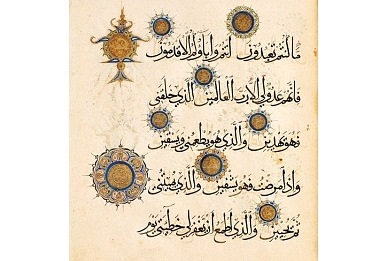 ما كنتم تعبدون انتم وآباؤكم الاقدمون
فانهم عدو لي الا رب العالمين الذي خلقني
فهو يهدين والذي هو يطعمني ويسقين
واذا مرضت فهو يشفين والذي يميتني
ثم يحيين والذي اطمع ان يغفر لي خطيئتي يوم